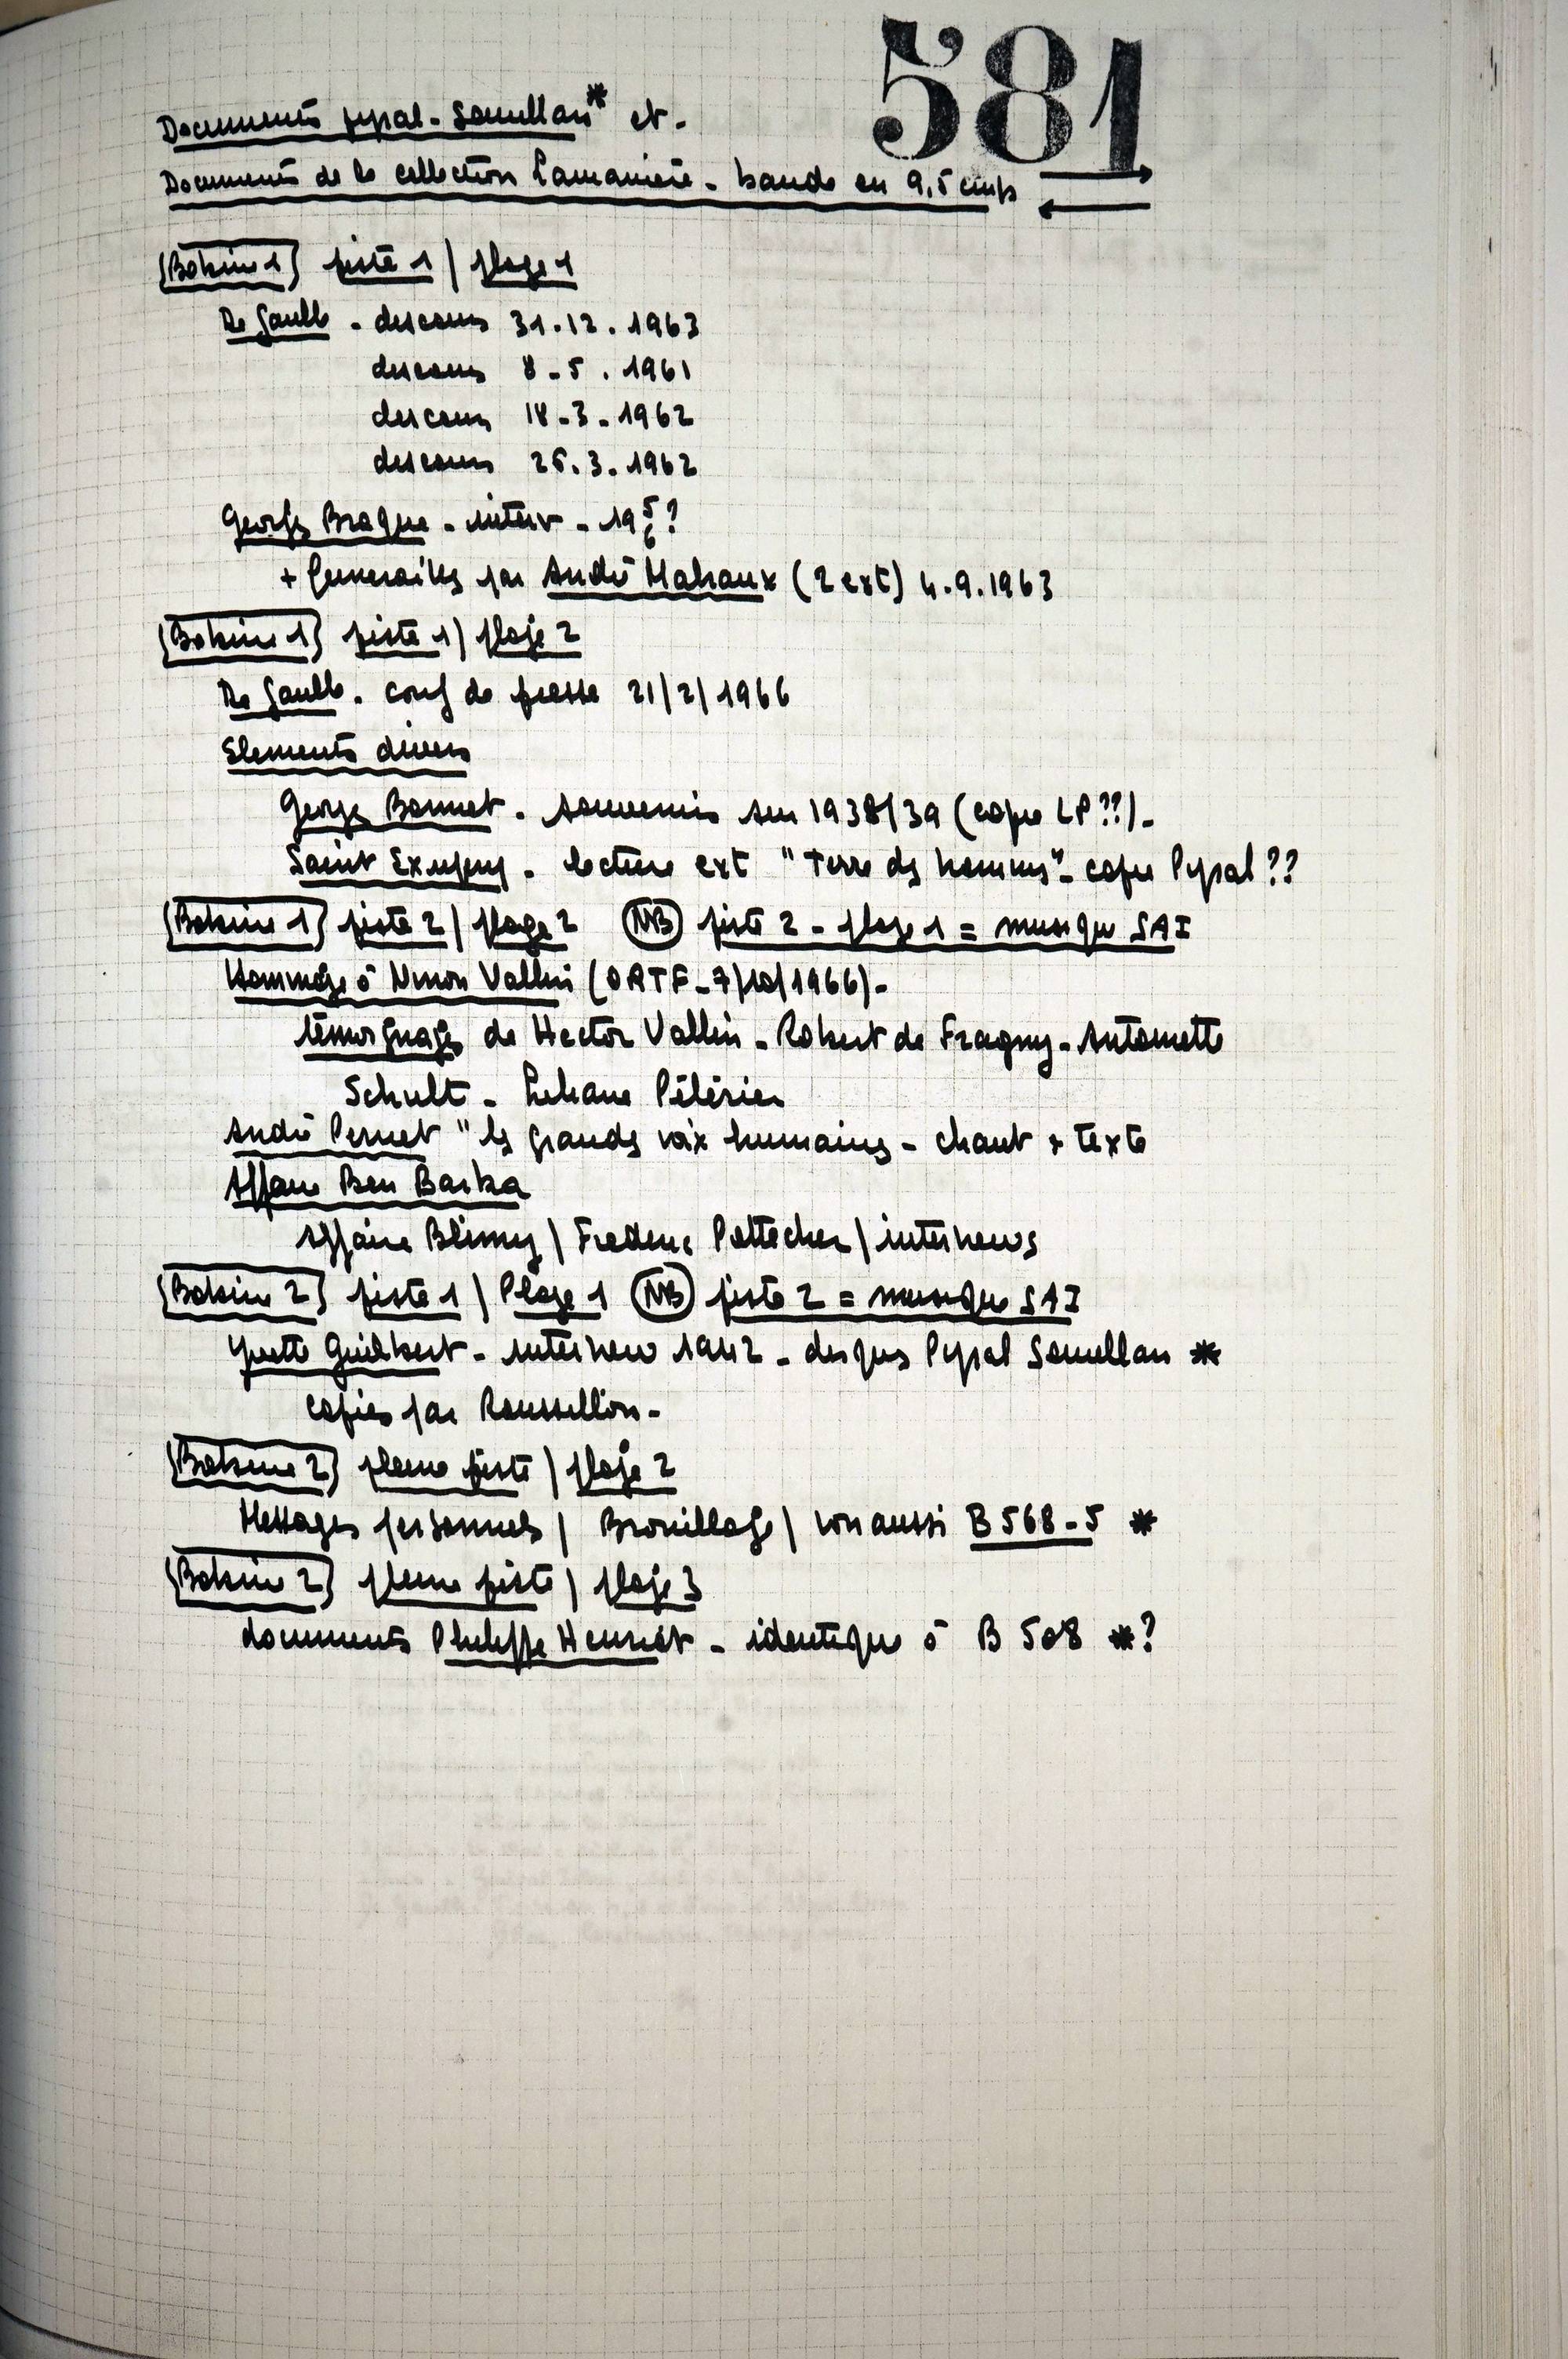 581
Documents Pepal - SoMullan* et -
Documents de la collection Lamanière - bande en 9,5 cm/s
Bobine 1 piste 1 / plage 1
De Gaulle - discours 31.12.1963
discours 8-5.1961
discours 18-3-1962
discours 26.3.1962
Georges Braque - interv - 195/6?
+ funerailles par André Malraux (2 ext) 4.9.1963
Bobine 1 piste 1 / plage 2
De Gaulle. conf de presse 21/2/1966
Elements divers
Georges Bonnet - souvenirs sur 1938/39 (copie LP??)-
Saint Exupery - lecture ext "Terre des hommes" - copie Pepal??
Bobine 1 piste 2 / plage 2 NB piste 2 - plage 1 = musique SAI
Hommage à Ninon Vallin (ORTF - 7/10/1966)-
témoignages de Hector Vallin - Robert de Fragny - Antoinette
Schult - Liliane
André Pernet "les grandes voix humaines - chant + texte
Affaire Ben Barka
Affaire / Frederic Pottecher / interviews
Bobine 2 piste 1 / Plage 1 NB piste 2 = musique SAI
Yvette Guilbert - interview 1942 - disques Pepal *
copies par Roussillon -
Bobine 2 pleine piste / plage 2
Messages personnels / Brouillage / voir aussi B 568-5 *
Bobine 2 pleine piste / plage 3
documents Philippe Henriot - identique à B 508 *?